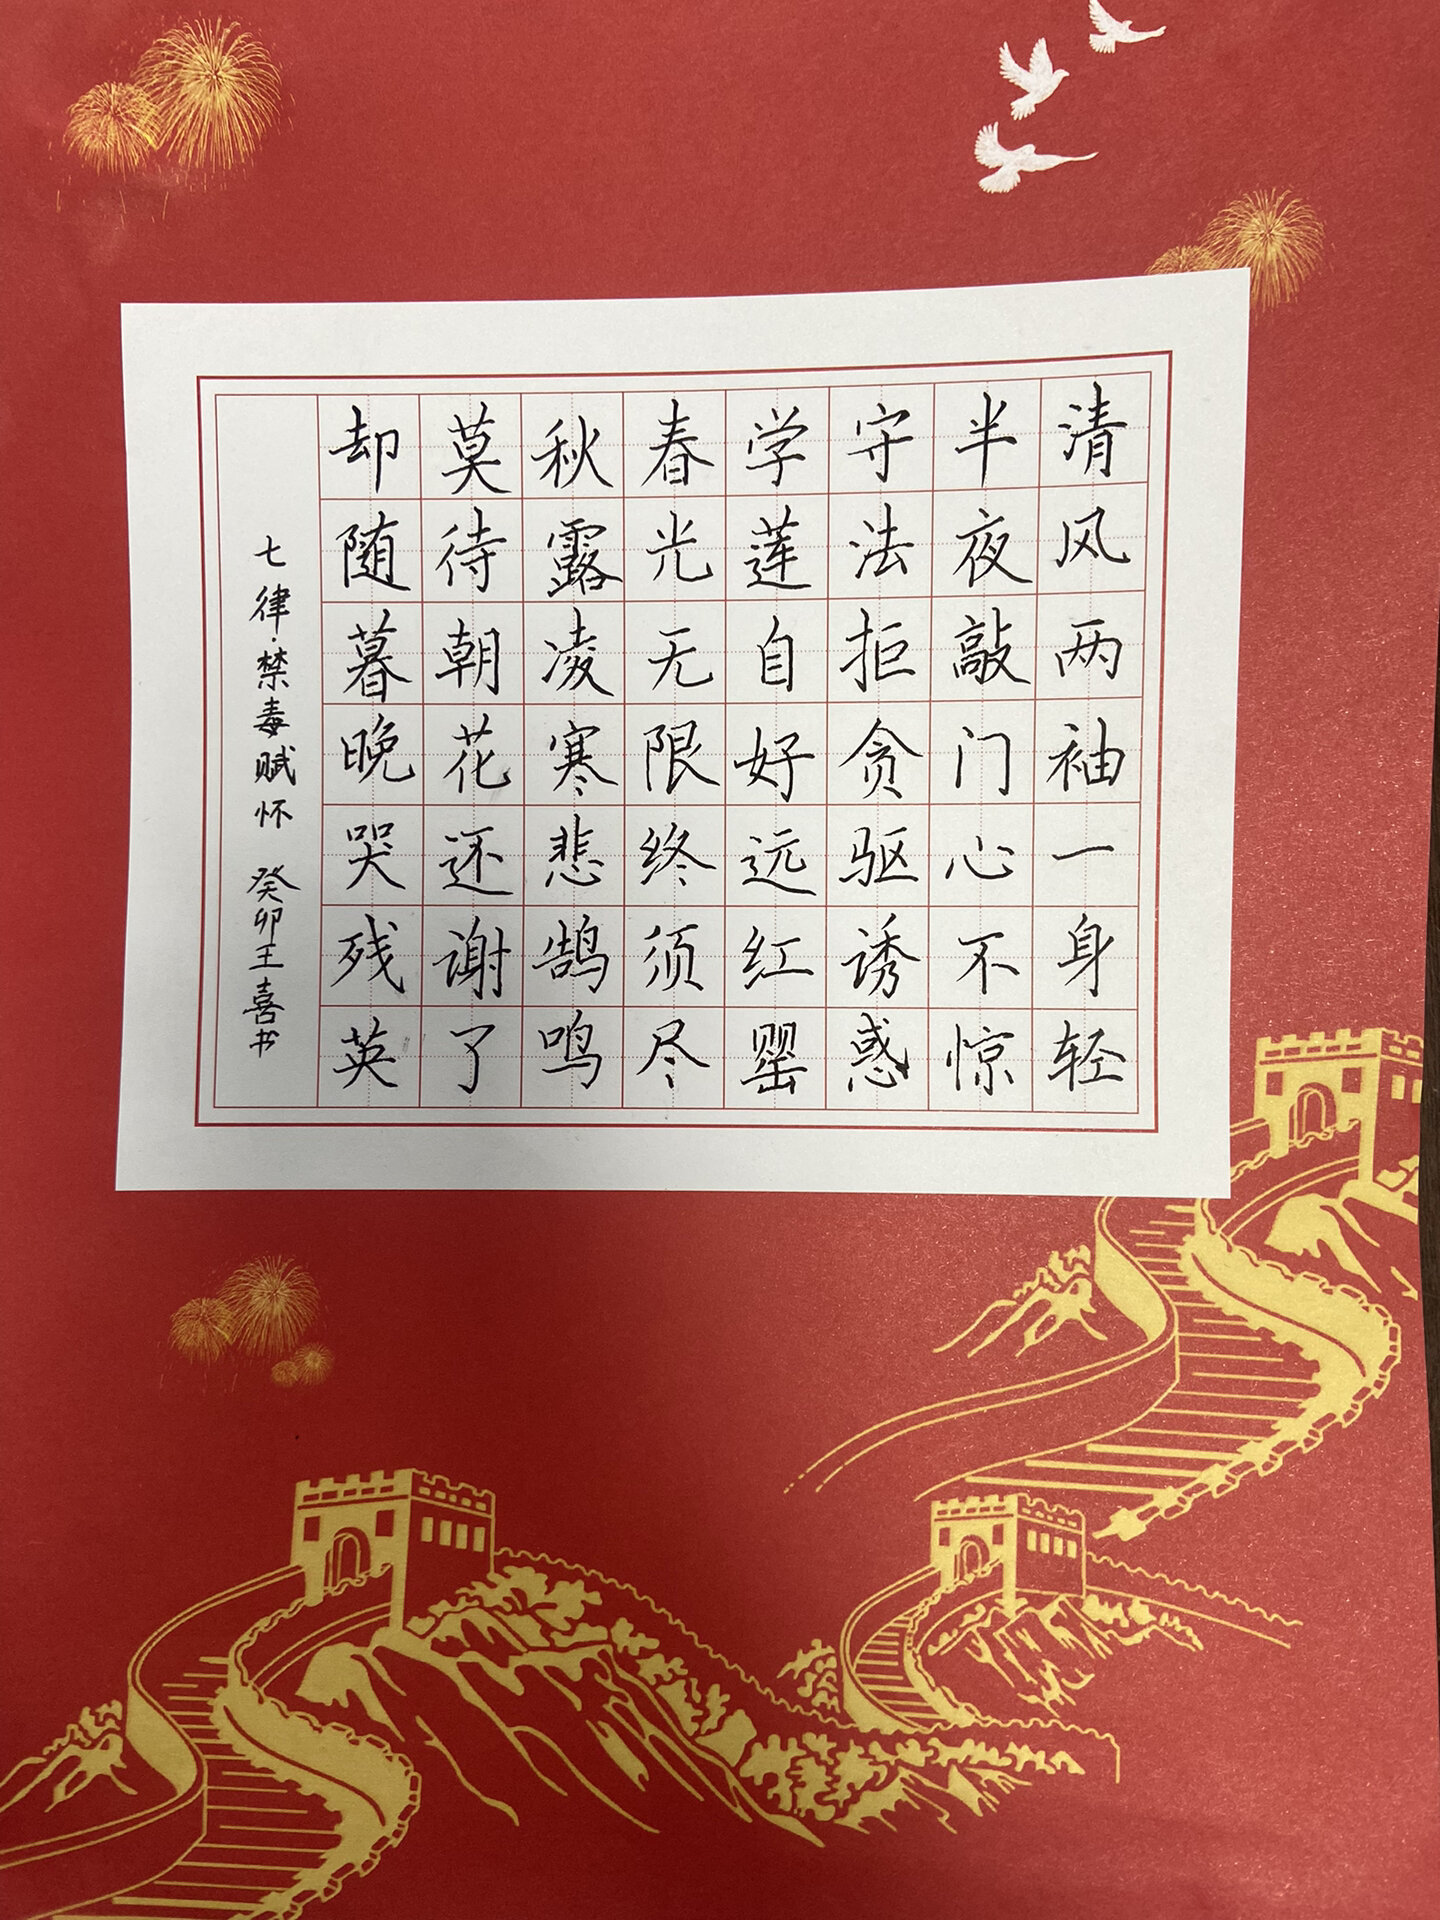 清风两袖一身轻
半夜敲门心不惊
守法拒贪驱诱惑
学莲自好远红罂
春光无限终须尽
秋露凌寒悲鹄鸣
莫待朝花还谢了
却随暮晚哭残英
七律·禁毒赋怀 癸卯王喜书